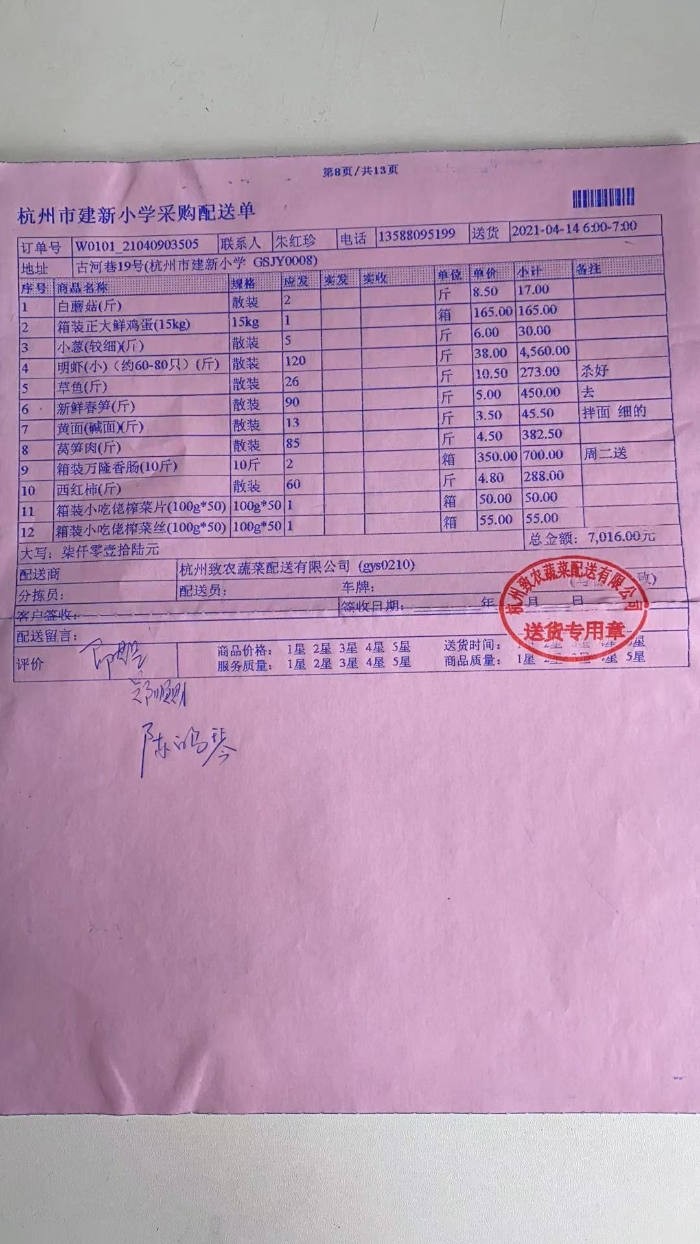 第8页/共13页
杭州市建新小学采购配送单
订单号 W0101_21040903505 联系人 朱红珍 电话 13588095199 送货 2021-04-14 6:00-7:00
地址 古河巷19号(杭州市建新小学 GSJY0008)
序号 商品名称 规格 应发 实发 实收 单位 单价 小计 备注
1 白蘑菇(斤) 散装 2 斤 8.50 17.00
2 箱装正大鲜鸡蛋(15kg) 15kg 1 箱 165.00 165.00
3 小葱(较细)(斤) 散装 5 斤 6.00 30.00
4 明虾(小)（约60-80只）(斤) 散装 120 斤 38.00 4,560.00
5 草鱼(斤) 散装 26 斤 10.50 273.00 杀好
6 新鲜春笋(斤) 散装 90 斤 5.00 450.00 去
7 黄面(碱面)(斤) 散装 13 斤 3.50 45.50 拌面 细的
8 莴笋肉(斤) 散装 85 斤 4.50 382.50
9 箱装万隆香肠(10斤) 10斤 2 箱 350.00 700.00 周二送
10 西红柿(斤) 散装 60 斤 4.80 288.00
11 箱装小吃佬榨菜片(100g*50) 100g*50 1 箱 50.00 50.00
12 箱装小吃佬榨菜丝(100g*50) 100g*50 1 箱 55.00 55.00
大写: 柒仟零壹拾陆元 总金额: 7,016.00元
配送商 杭州致农蔬菜配送有限公司 (gys0210)
分拣员: 配送员: 车牌:
客户签收: 签收日期: 年 月 日
杭州致农蔬菜配送有限公司
送货专用章
配送留言:
评价 商品价格: 1星 2星 3星 4星 5星 送货时间: 星 5星
服务质量: 1星 2星 3星 4星 5星 商品质量: 1星 星 5星
陈鸿琴